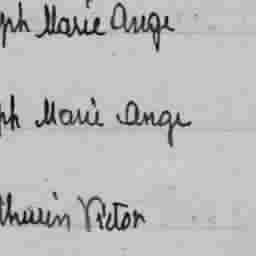 ph Marie Ange
ph Marie Ange
thurin Victor